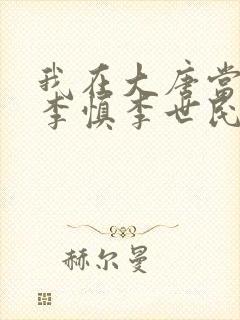 我在大唐当
李慎李世民
赫尔曼